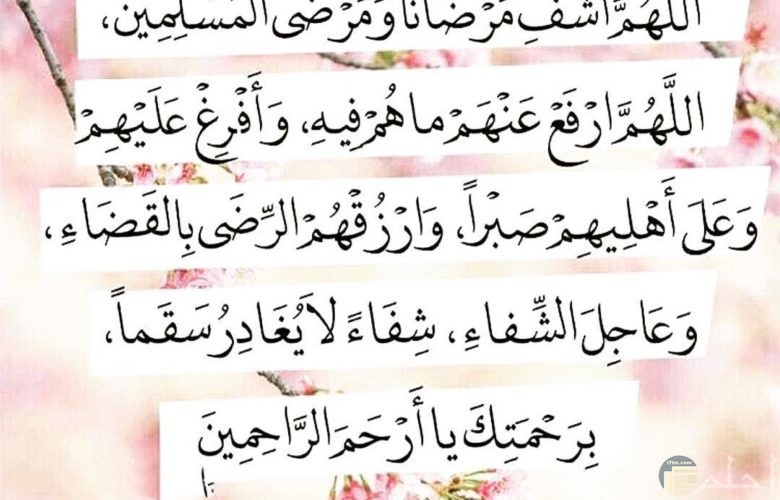 اللَّهُمَّ اشْفِ مَرْضَانَا وَمَرْضَى الْمُسْلِمِينَ،
اللَّهُمَّ ارْفَعْ عَنْهَمْ ما هُمْ فِيهِ، وَأَفْرِغْ عَلَيْهِمْ
وَعَلَى أَهْلِيهِمْ صَبْراً، وَارْزُقْهُمْ الرِّضَى بِالقَضَاءِ،
وَعَاجِلَ الشِّفاءِ، شِفَاءً لاَ يُغَادِرُ سَقَماً،
بِرَحْمَتِكَ يا أَرْحَمَ الرَّاحِمِينَ